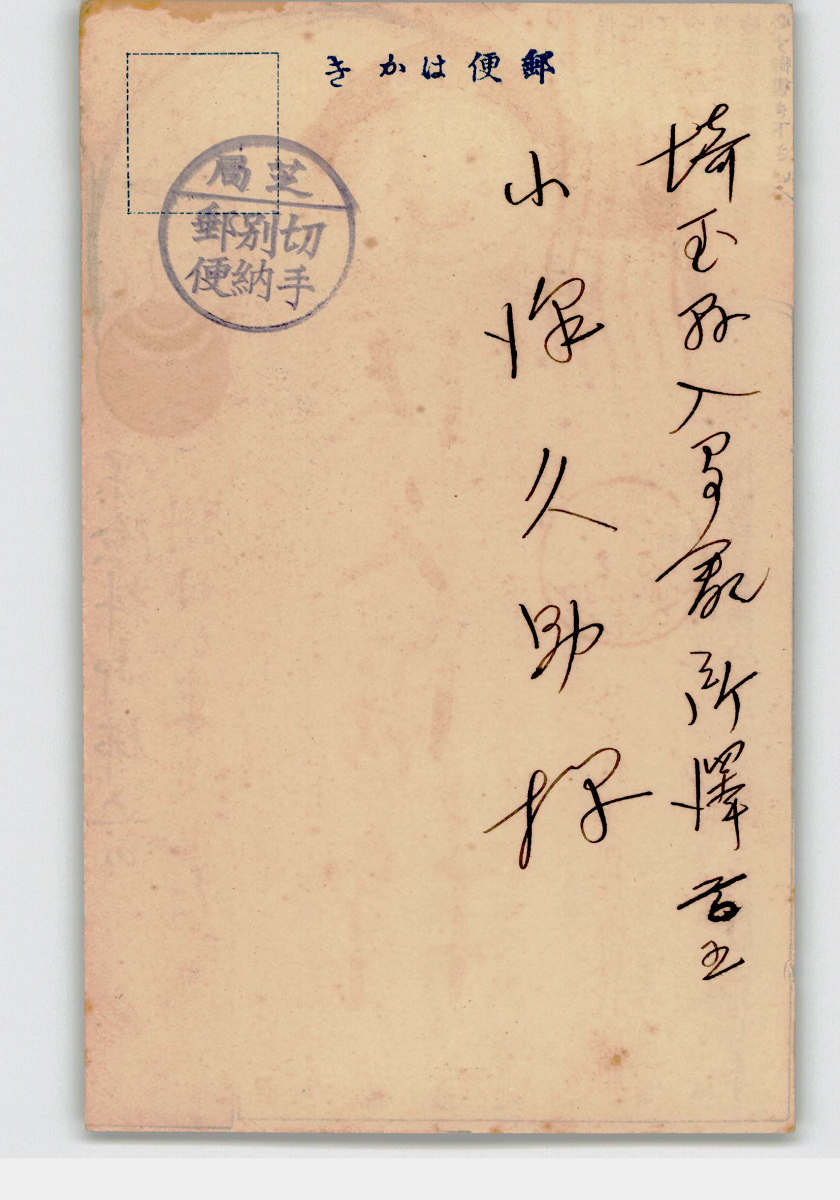 郵便はかき
芝局
切手
別納
郵便
埼玉縣入間郡所澤
小 久助様